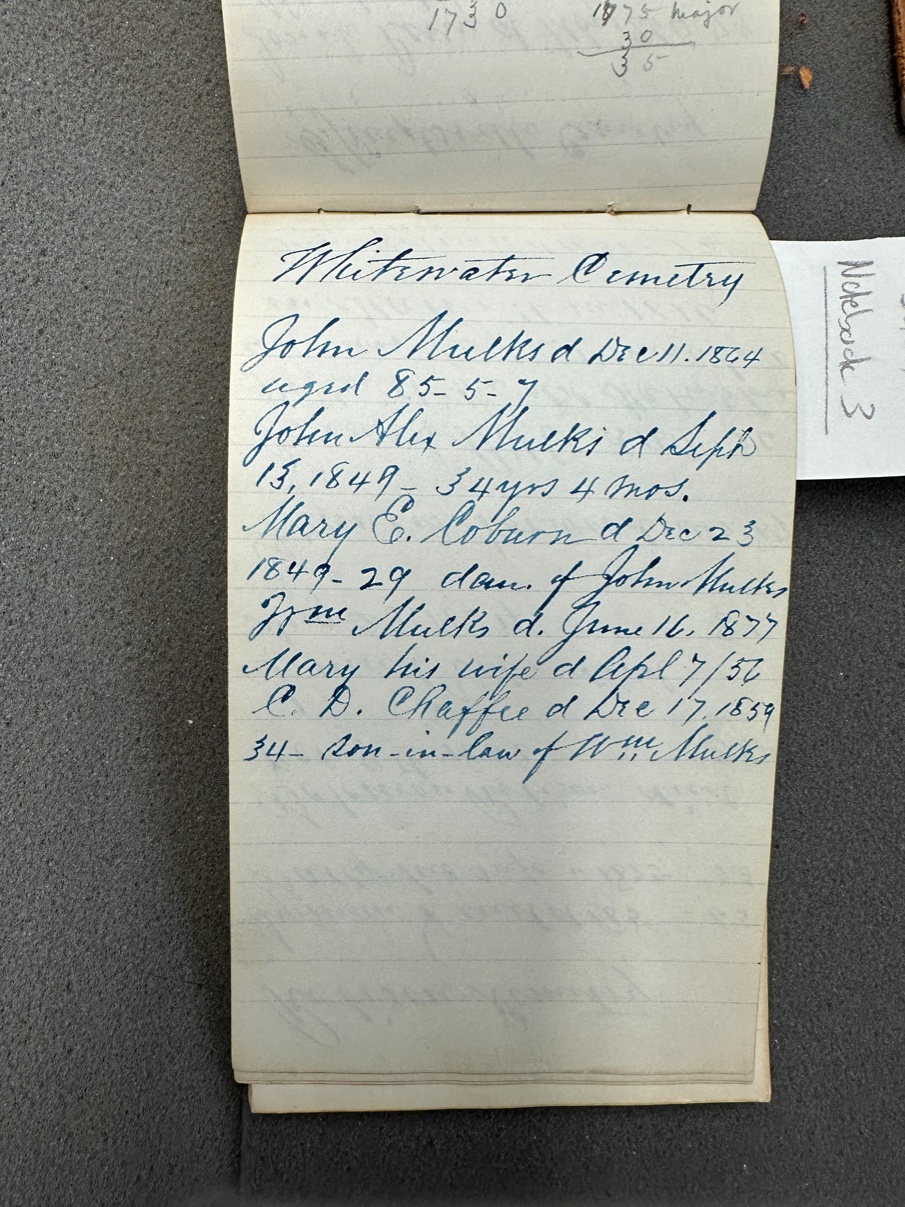 1730 1775 major
30
35
Whitewater Cemetry
John Mulks d Dec 11. 1864
aged 85-5-7
John Alex Mulks d Sept
13, 1849- 34yrs 4 mos.
Mary E. Coburn d Dec 23
1849-29 dau. of John Mulks
Wm Mulks d. June 16. 1877
Mary his wife d Apl 7/56
C. D. Chaffee d Dec 17. 1859
34- son-in-law of Wm Mulks
Notebook 3